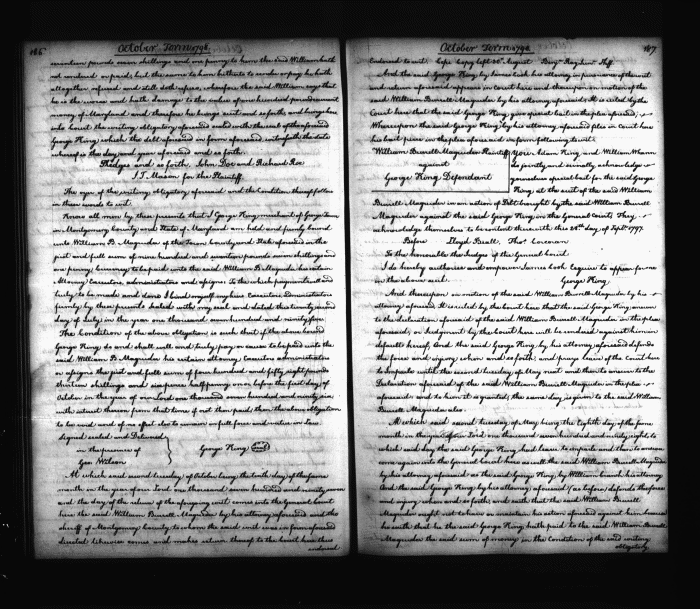 186
October Term 1798
seventeen pounds seven shillings and one penny to him the said William hath
not rendered or paid, but the same to him hitherto to render or pay he hath
altogether refused and still doth refuse, wherefore the said William says that
he is the worse and hath damage to the value of one hundred pounds current
money of Maryland and therefore he brings suit and so forth, and brings here
into Court the writing obligatory aforesaid sealed with the seal of the aforesaid
George King, which the debt aforesaid in form aforesaid witnesseth the date
whereof is the day and year aforesaid and so forth.
Pledges and so forth. John Doe and Richard Roe
J. T. Mason for the Plaintiff.
The tenor of the writing obligatory aforesaid and the Condition thereof follow
in these words to wit.
Know all men by these presents that I George King merchant of George Town
in Montgomery County and State of Maryland am held and firmly bound
unto William B. Magruder of the Town County and State aforesaid in the
just and full sum of nine hundred and seventeen pounds seven shillings and
one penny Currency to be paid unto the said William B. Magruder his certain
Attorney Executors, administrators and assigns. To the which payment well and
truly to be made and done I bind myself my heirs Executors Administrators
firmly by these presents Sealed with my seal and dated this twenty second
day of July in the year one thousand seven hundred and ninety five.
The Condition of the above Obligation is such that if the above bound
George King do and shall well and truly, pay or cause to be paid unto the
said William B. Magruder his certain attorney Executors administrators
or assigns the just and full sum of four hundred and fifty eight pounds
thirteen shillings and six pence half penny on or before the first day of
October in the year of our Lord one thousand seven hundred and ninety six
with interest thereon from that time if not then paid, then the above obligation
to be void and of no effect else to remain in full force and virtue in Law
Signed sealed and Delivered
in the presence of
George King (seal)
Geo. Wilson
At which said second tuesday of October being the tenth day of the same
month in the year of our Lord one thousand seven hundred and ninety seven
and the day of the return of the aforegoing writ comes into the General Court
here the said William Burrell Magruder by his attorney aforesaid and the
sheriff of Montgomery County to whom the said writ was in form aforesaid
directed likewise comes and makes return thereof to the Court here thus
endorsed
October Term 1798
187
Endorsed to wit. Cepi Copy left 26th August
And the said George King by James Cook his attorney in pursuance of the writ
and return aforesaid appears in Court here and thereupon on motion of the
said William Burrell Magruder by his attorney aforesaid, It is ruled by the
Court here that the said George King give special bail in the plea aforesaid,
Whereupon the said George King by his attorney aforesaid files in Court here
his bail piece in the plea aforesaid in form following to wit.
William Burrell Magruder Plaintiff
against
George King Defendant
You Adam King, and William Whann
do jointly and severally, acknowledge
yourselves special bail for the said George
King at the suit of the said William
Burrell Magruder in an action of Debt brought by the said William Burrell
Magruder against the said George King in the General Court. They
acknowledge themselves to be content therewith this 28th day of Septr. 1797.
Before Lloyd Beall. Thos. Corcoran
To the honorable the Judges of the General Court
I do hereby authorise and empower James Cook Esquire to appear for me
in the above suit. George King
And thereupon on motion of the said William Burrell Magruder by his
attorney aforesaid It is ruled by the Court here that the said George King answer
to the declaration aforesaid of the said William Burrell Magruder in the plea
aforesaid, or Judgment by the Court here will be rendered against him on
default hereof, And the said George King, by his attorney, aforesaid defends
the force and injury when and so forth; and prays leave of the Court here
to Imparle until the second tuesday of May next and then to answer to the
Declaration aforesaid of the said William Burrell Magruder in the plea
aforesaid and to him it is granted, the same day is given to the said William
Burrell Magruder also.
At which said second tuesday of May being the Eighth day of the same
month in the year of our Lord one thousand seven hundred and ninety eight to
which said day the said George King had leave to imparle and then to answer
come again into the General Court here as well the said William Burrell Magruder
by his attorney aforesaid as the said George King by
and the said George King by his attorney aforesaid as before, defends the force
and injury when and so forth, and saith that the said William Burrell
Magruder ought not to have or maintain his action aforesaid against him because
he saith that he the said George King, hath paid to the said William Burrell
Magruder the said sum of money in the Condition of the said writing
obligatory